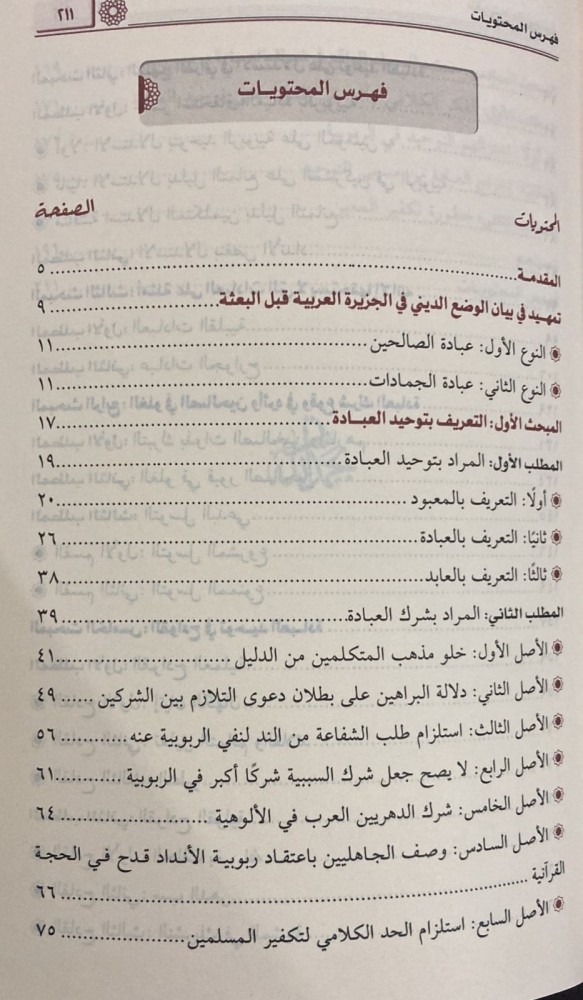 فهرس المحتويات
٢١١
فهرس المحتويات
المحتويات الصفحة
المقدمة ٥
تمهيد في بيان الوضع الديني في الجزيرة العربية قبل البعثة ٩
النوع الأول: عبادة الصالحين ١١
النوع الثاني: عبادة الجمادات ١١
المبحث الأول: التعريف بتوحيد العبادة ١٧
المطلب الأول: المراد بتوحيد العبادة ١٩
أولًا: التعريف بالمعبود ٢٠
ثانيًا: التعريف بالعبادة ٢٦
ثالثًا: التعريف بالعابد ٣٨
المطلب الثاني: المراد بشرك العبادة ٣٩
الأصل الأول: خلو مذهب المتكلمين من الدليل ٤١
الأصل الثاني: دلالة البراهين على بطلان دعوى التلازم بين الشركين ٤٩
الأصل الثالث: استلزام طلب الشفاعة من الند لنفي الربوبية عنه ٥٦
الأصل الرابع: لا يصح جعل شرك السببية شركًا أكبر في الربوبية ٦١
الأصل الخامس: شرك الدهريين العرب في الألوهية ٦٤
الأصل السادس: وصف الجاهليين باعتقاد ربوبية الأنداد قدح في الحجة
القرآنية ٦٦
الأصل السابع: استلزام الحد الكلامي لتكفير المسلمين ٧٥